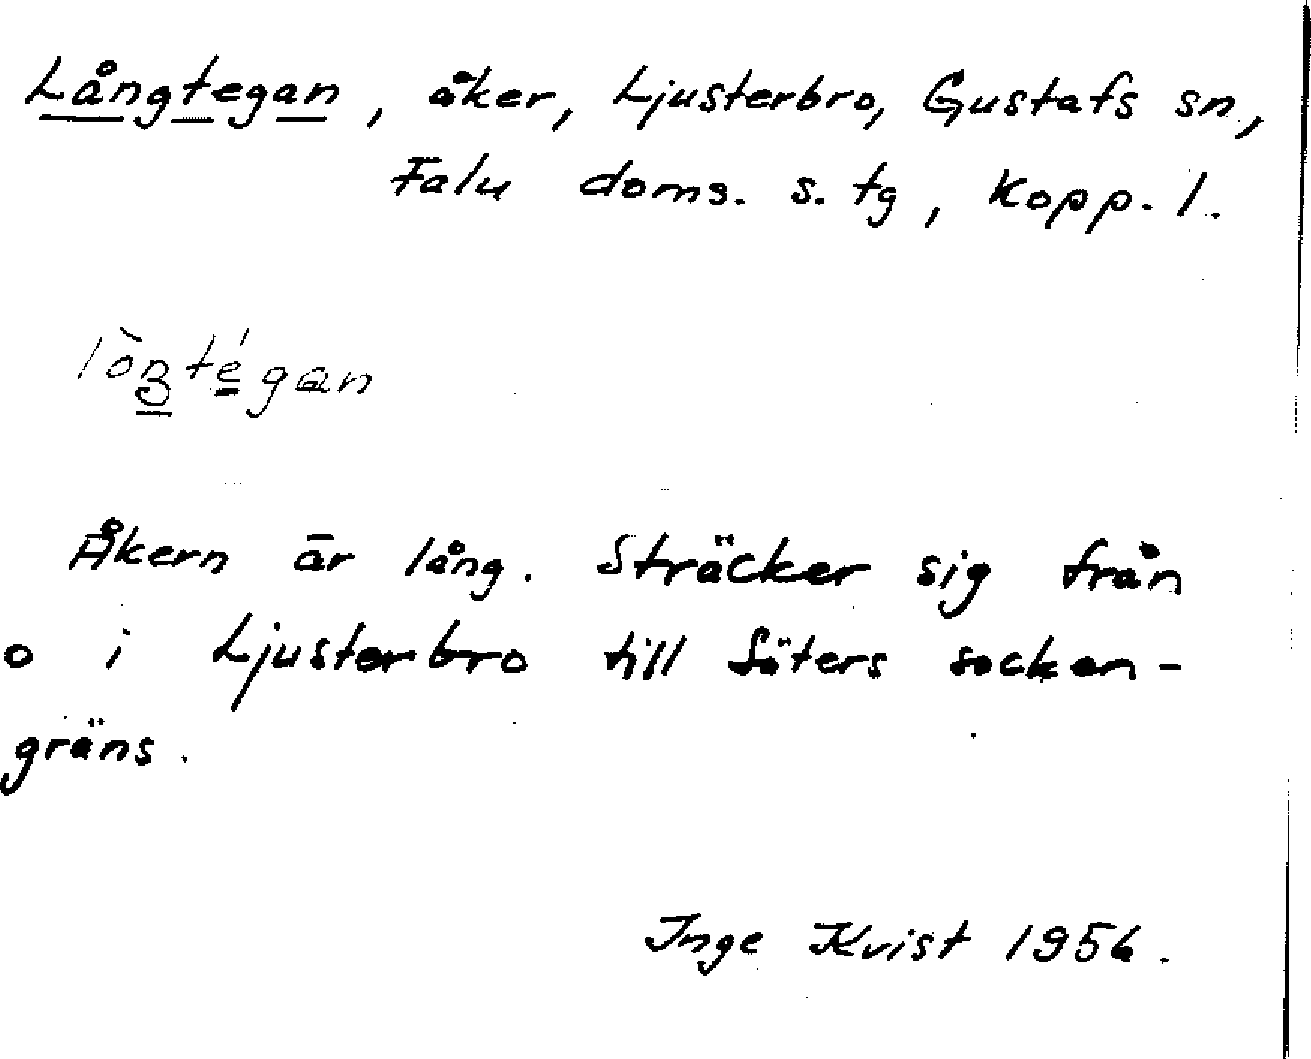 Långtegan, åker, Ljusterbro, Gustafs sn,
Falu doms. s. tg, Kopp. l.
Åkern är lång. Sträcker sig från
o i Ljusterbro till Säters socken-
gräns.
Inge Kvist 1956.